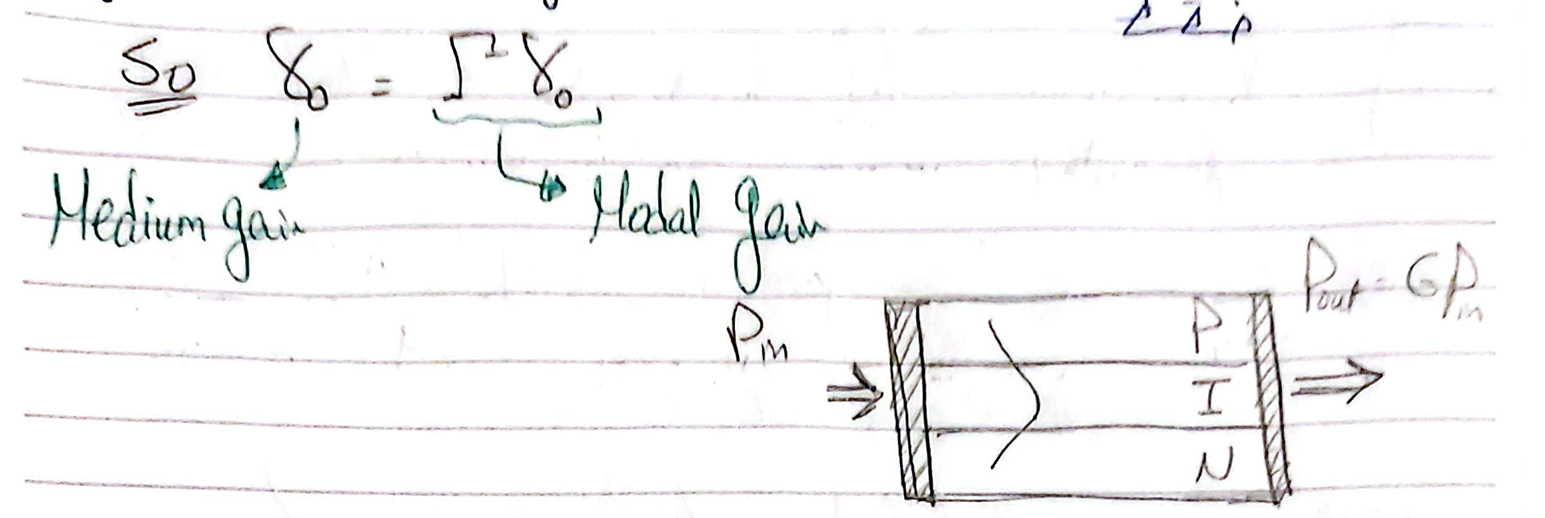 So γ₀ = Γ γ₀
Medium gain
Modal gain
Pin
Pout = GPin
P
I
N